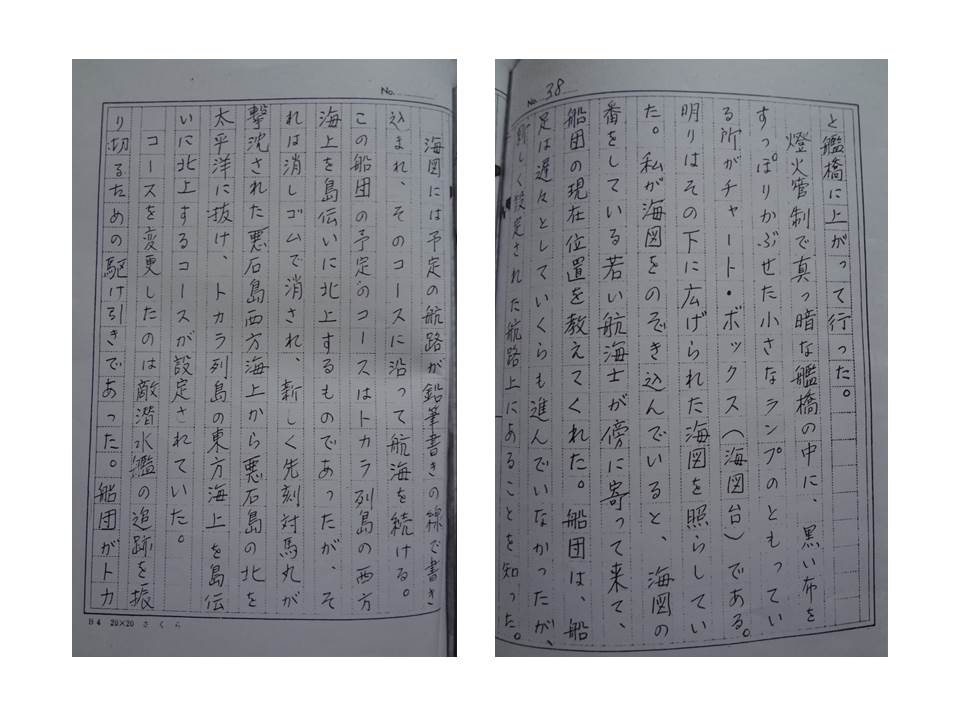 No. 38
と艦橋に上がって行った。
燈火管制で真っ暗な艦橋の中に、黒い布を
すっぽりかぶせた小さなランプのともってい
る所がチャート・ボックス(海図台)である。
明りはその下に広げられた海図を照らしてい
た。私が海図をのぞき込んでいると、海図の
番をしている若い航海士が傍に寄って来て、
船団の現在位置を教えてくれた。船団は、船
足は遅々としていくらも進んでいなかったが、
新しく設定された航路上にあることを知った。
No.
海図には予定の航路が鉛筆書きの線で書き
込まれ、そのコースに沿って航海を続ける。
この船団の予定のコースはトカラ列島の西方
海上を島伝いに北上するものであったが、そ
れは消しゴムで消され、新しく先刻対馬丸が
撃沈された悪石島西方海上から悪石島の北を
太平洋に抜け、トカラ列島の東方海上を島伝
いに北上するコースが設定されていた。
コースを変更したのは敵潜水艦の追跡を振
り切るための駆け引きであった。船団がトカ
B4 20×20 さくら